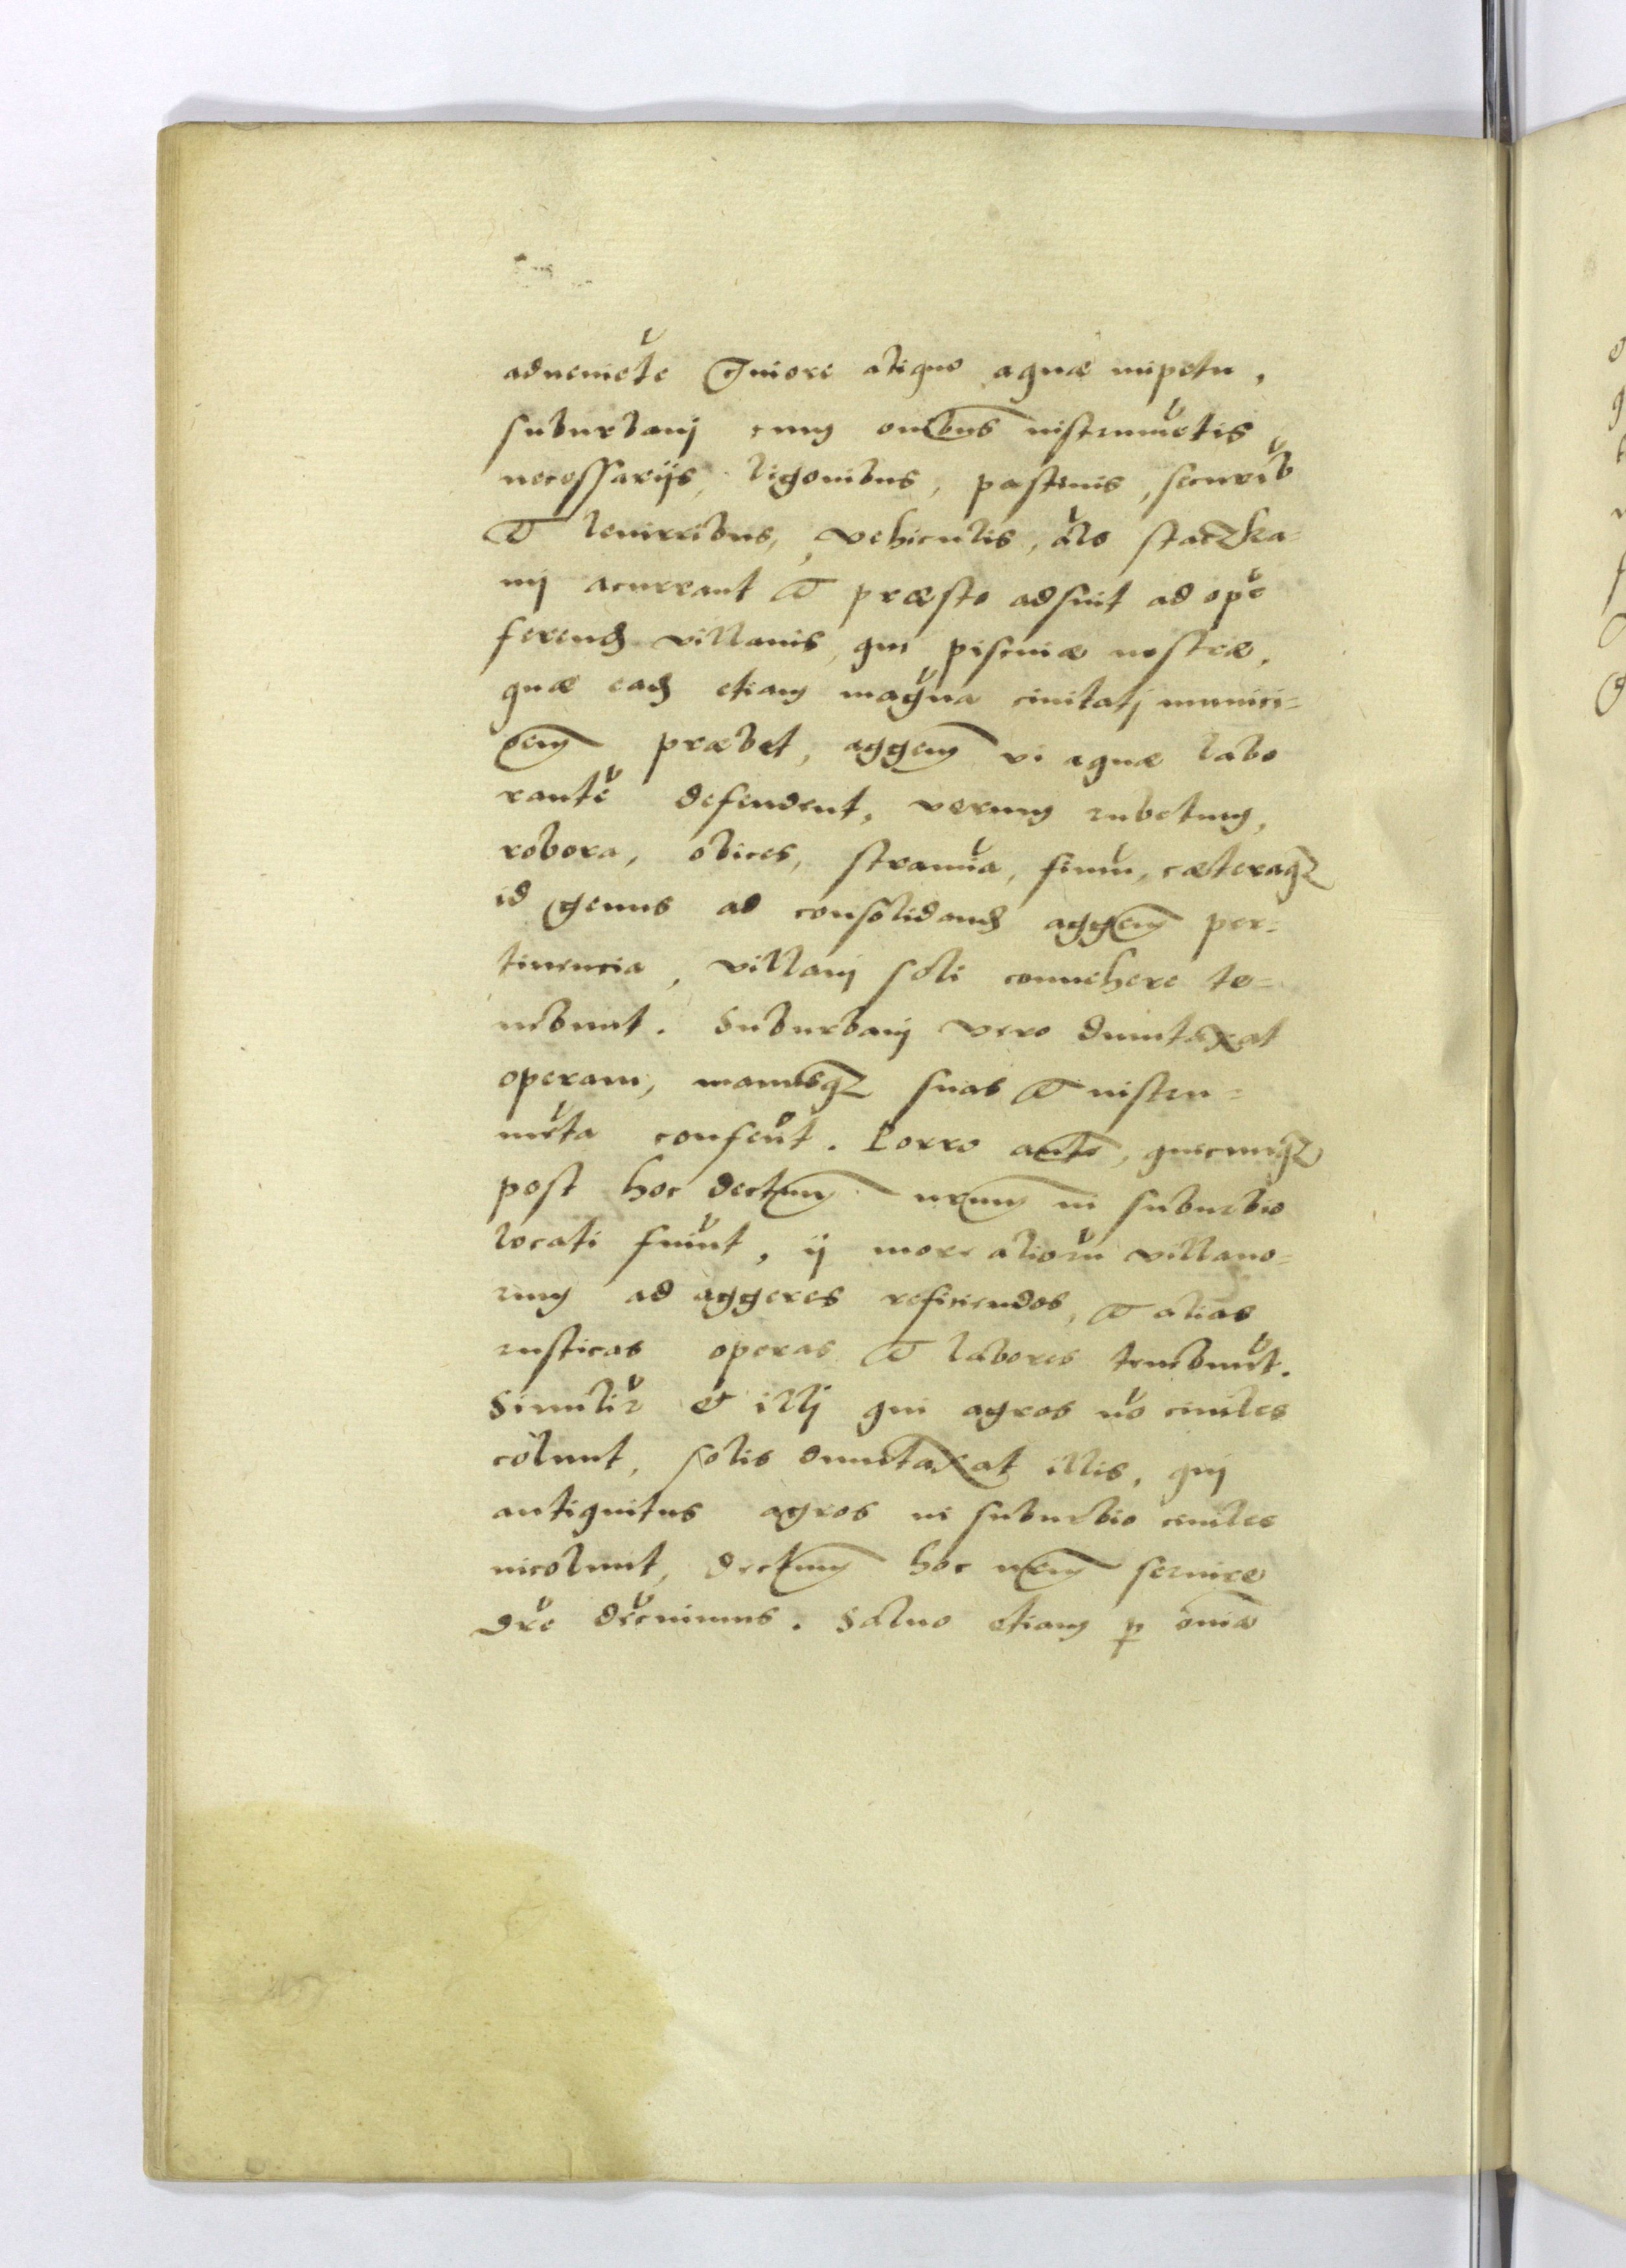 adueniēte Gruiore aliquo aquæ impetu,
suburbanj cum om̄ibus instrumētis
necessarijs, ligonibus, pastinis, securib
et leuirribus, vehiculis, als staczka-
mij acurrant et præsto adsint ad opē
ferendȝ villanis, qui piscinæ nostræ,
quæ eadȝ etiam magna ciuitatj munici-
oem præbet, aggerem vi aquæ labo
rantē defendent, verum rubetum,
robora, obices, stramīa, fimū, cæteraqȝ
id genus ad consolidandȝ aggerem per-
tinencia, villanj soli conuehere te-
nebunt. Suburbanj vero duntaxat
operam, manusqȝ suas et instru-
mēta conferūt. Porro autē, quicunqȝ
post hoc decretum nrum in suburbio
locati fuint, ij more aliorū villano-
rum ad aggeres reficiendos, et alias
rusticas operas et labores tenebunt.
Similir et illj qui agros nō ciuiles
colunt, solis duntaxat illis, quj
antiquitus agros in suburbio ciuiles
incolunt, decretum hoc nrum seruire
drē decreuimus. Saluo etiam p omīa